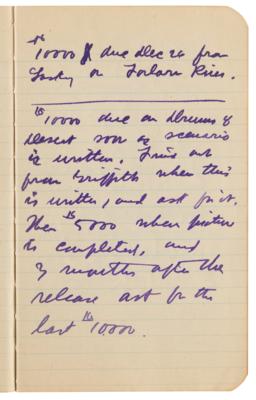 $10000 due Dec 26 from
Lasky on Forlorn River.
$10000 due on Drums of
Desert soon as scenario
is written. Find out
from Griffith when this
is written, and ask for it.
Then $5000 when picture
is completed, and
3 months after the
release ask for the
last $10000.